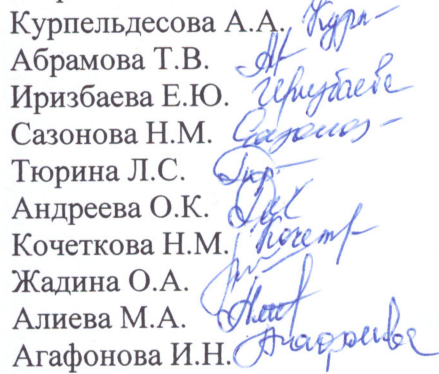 Курпельдесова А.А. Курп
Абрамова Т.В.
Иризбаева Е.Ю. Иризбаева
Сазонова Н.М. Сазонов
Тюрина Л.С. Тюр
Андреева О.К.
Кочеткова Н.М. Кочет
Жадина О.А.
Алиева М.А.
Агафонова И.Н. Агафонова